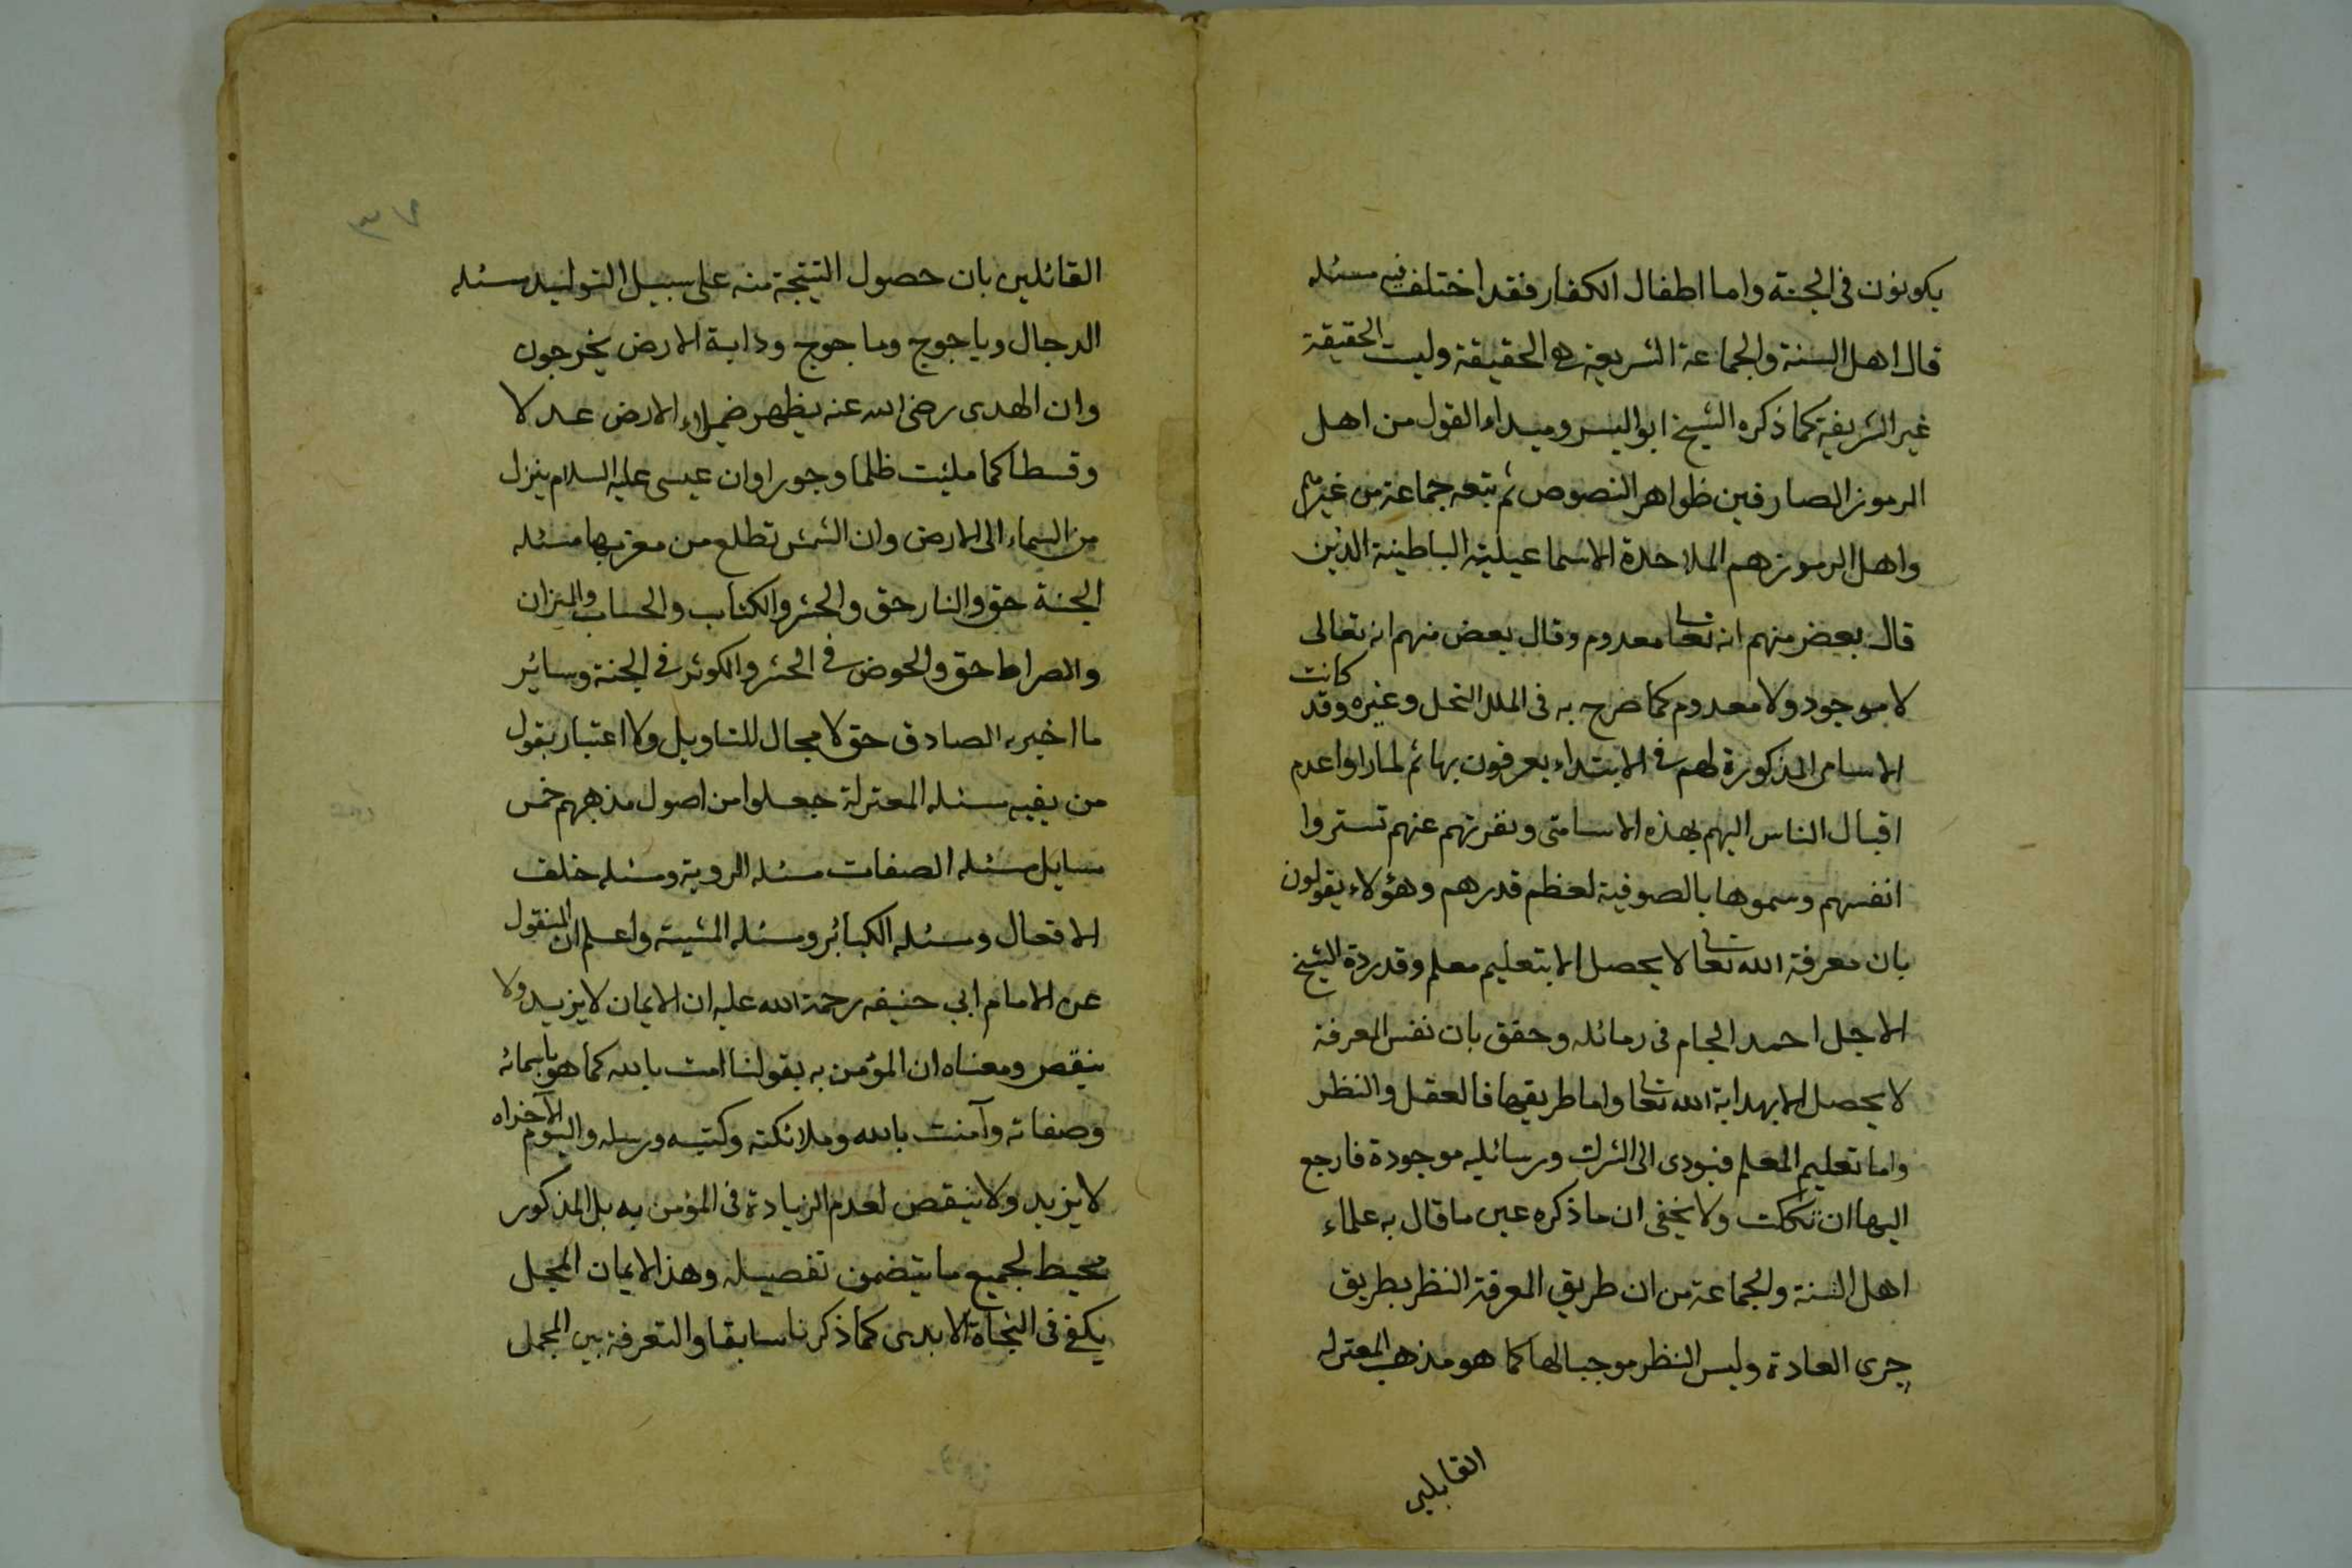 يكونون فى الجنة واما اطفال الكفار فقد اختلف فيه مسئله
قال اهل السنة والجماعة الشريعة هى الحقيقة وليت الحقيقة
غير الشريعة كما ذكره الشيخ ابو اليسر ومبداء القول من اهل
الرموز الصارفين ظواهر النصوص ثم يتعه جماعة من غيرهم
واهل الرموز هم الملاحدة الاسماعيلية الباطينة الذين
قال بعض منهم انه تعا معدوم وقال بعض منهم انه تعالى
لا موجود ولا معدوم كما صرح به فى الملل النحل وغيره وقد كانت
الاسامى المذكورة لهم فى الابتداء يعرفون بها ثم لما راوا عدم
اقبال الناس اليهم بهذه الاسامى ونفرتهم عنهم تستروا
انفسهم وسموها بالصوفية لعظم قدرهم وهؤلاء يقولون
بان معرفة الله تعا لا يحصل الا بتعليم معلم وقد رده الشيخ
الاجل احمد الجام فى رسائله وحقق بان نفس المعرفة
لا يحصل الا بهداية الله تعا واما طريقها فالعقل والنظر
واما تعليم المعلم فيودى الى الشرك ورسائليه موجودة فارجع
اليها ان تككت ولا يخفى ان ما ذكره عين ما قال به علماء
اهل السنة والجماعة من ان طريق المعرفة النظر بطريق
جرى العادة وليس النظر موجبا لها كما هو مذهب المعتزله
القايلين
٣٧
القائلين بان حصول النتيجة منه على سبيل التوليد مسئله
الدجال وياجوج وماجوج ودابة الارض يخرجون
وان المهدى رضى الله عنه يظهر فيملاء الارض عدلا
وقسطا كما ملئت ظلما وجورا وان عيسى عليه السلام ينزل
من السماء الى الارض وان الشمس تطلع من مغربها مسئله
الجنة حق والنار حق والحشر والكتاب والحساب والميزان
والصراط حق والحوض فى الحشر والكوثر فى الجنة وسائر
ما اخبر به الصادق حق لا مجال للتاويل ولا اعتبار بقول
من يفيه مسئله المعتزلة جعلوا من اصول مذهبهم خمس
مسايل مسئله الصفات مسئله الروية ومسئله خلف
الافعال ومسئله الكبائر ومسئله المشية واعلم ان المنقول
عن الامام ابي حنيفه رحمة الله عليه ان الايمان لا يزيد ولا
ينقص ومعناه ان المؤمن به بقولنا امنت بالله كما هو باسمائه
وصفاته وآمنت بالله وملائكته وكتبه ورسله واليوم الآخراه
لا يزيد ولا ينقص لعدم الزيادة فى المؤمن به بل المذكور
محيط لجميع ما يتضمن تفصيله وهذا الايمان المجمل
يكفى فى النجاة الابدى كما ذكرنا سابقا والتعرفة بين المجمل